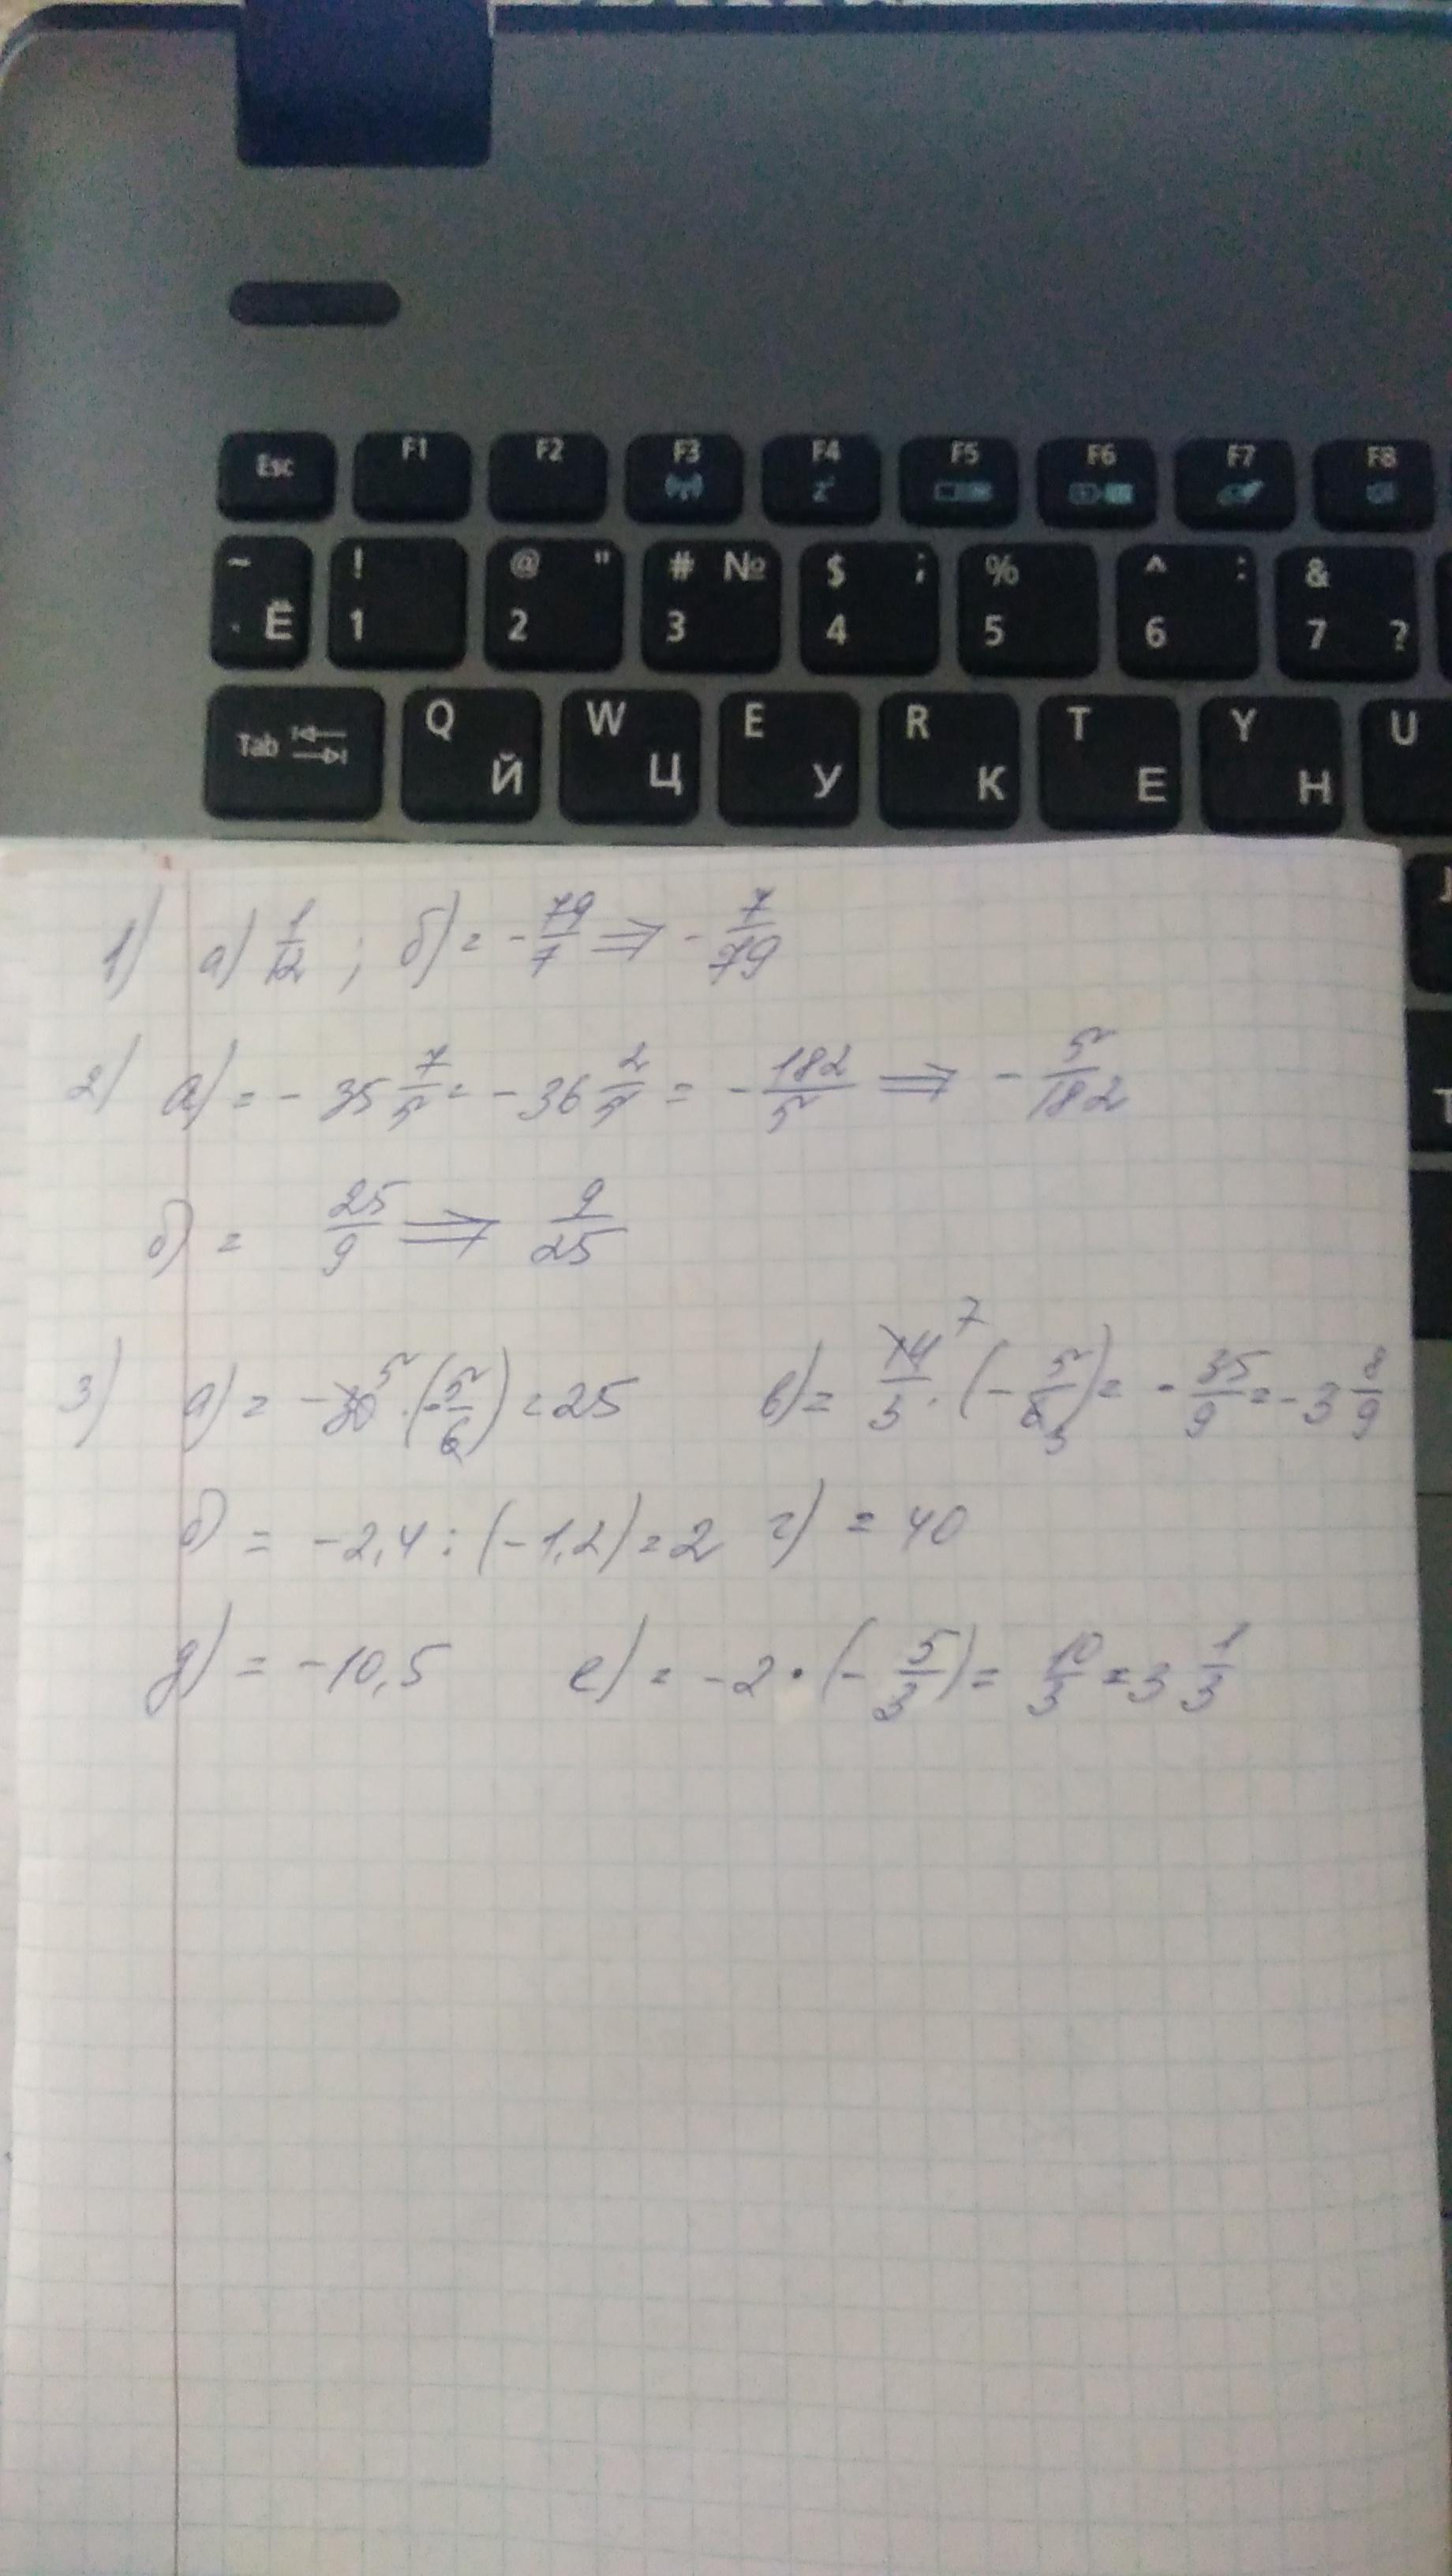 Esc F1 F2 F3 F4 F5 F6 F7 F8
~ Ё ! 1 @ " 2 # № 3 $ ; 4 % 5 ^ : 6 & 7 ?
Tab Q Й W Ц E У R К T Е Y Н U
1) а) 1/12 ; б) = - 79/7 ⇒ - 7/79
2) а) = - 35 7/5 = - 36 2/5 = - 182/5 ⇒ - 5/182
б) = 25/9 ⇒ 9/25
3) а) = - 30 5 · (- 5/6) = 25 в) = 14/3 7 · (- 5/6 3) = - 35/9 = - 3 8/9
б) = - 2,4 : (- 1,2) = 2 г) = 40
д) = - 10,5 е) = - 2 · (- 5/3) = 10/3 = 3 1/3